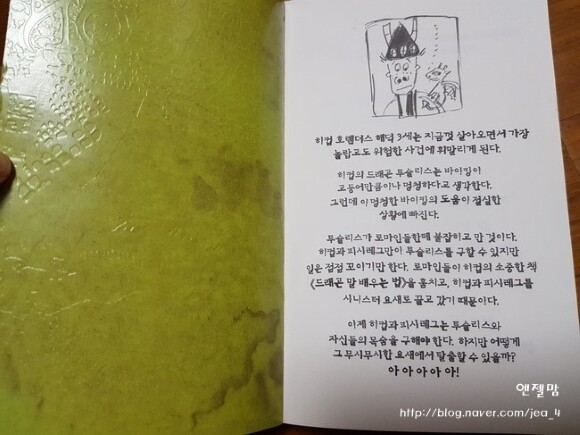 히컵 호렌더스 해덕 3세는 지금껏 살아오면서 가장
놀랍고도 위험한 사건에 휘말리게 된다.
히컵의 드래곤 투슬리스는 바이킹이
고등어만큼이나 멍청하다고 생각한다.
그런데 이 멍청한 바이킹의 도움이 절실한
상황에 빠진다.
투슬리스가 로마인들한테 붙잡히고 만 것이다.
히컵과 피시레그만이 투슬리스를 구할 수 있지만
일은 점점 꼬이기만 한다. 로마인들이 히컵의 소중한 책
《드래곤 말 배우는 법》을 훔치고, 히컵과 피시레그를
시니스터 요새로 끌고 갔기 때문이다.
이제 히컵과 피시레그는 투슬리스와
자신들의 목숨을 구해야 한다. 하지만 어떻게
그 무시무시한 요새에서 탈출할 수 있을까?
아 아 아 아 아!
앤젤맘
http://blog.naver.com/jea_4